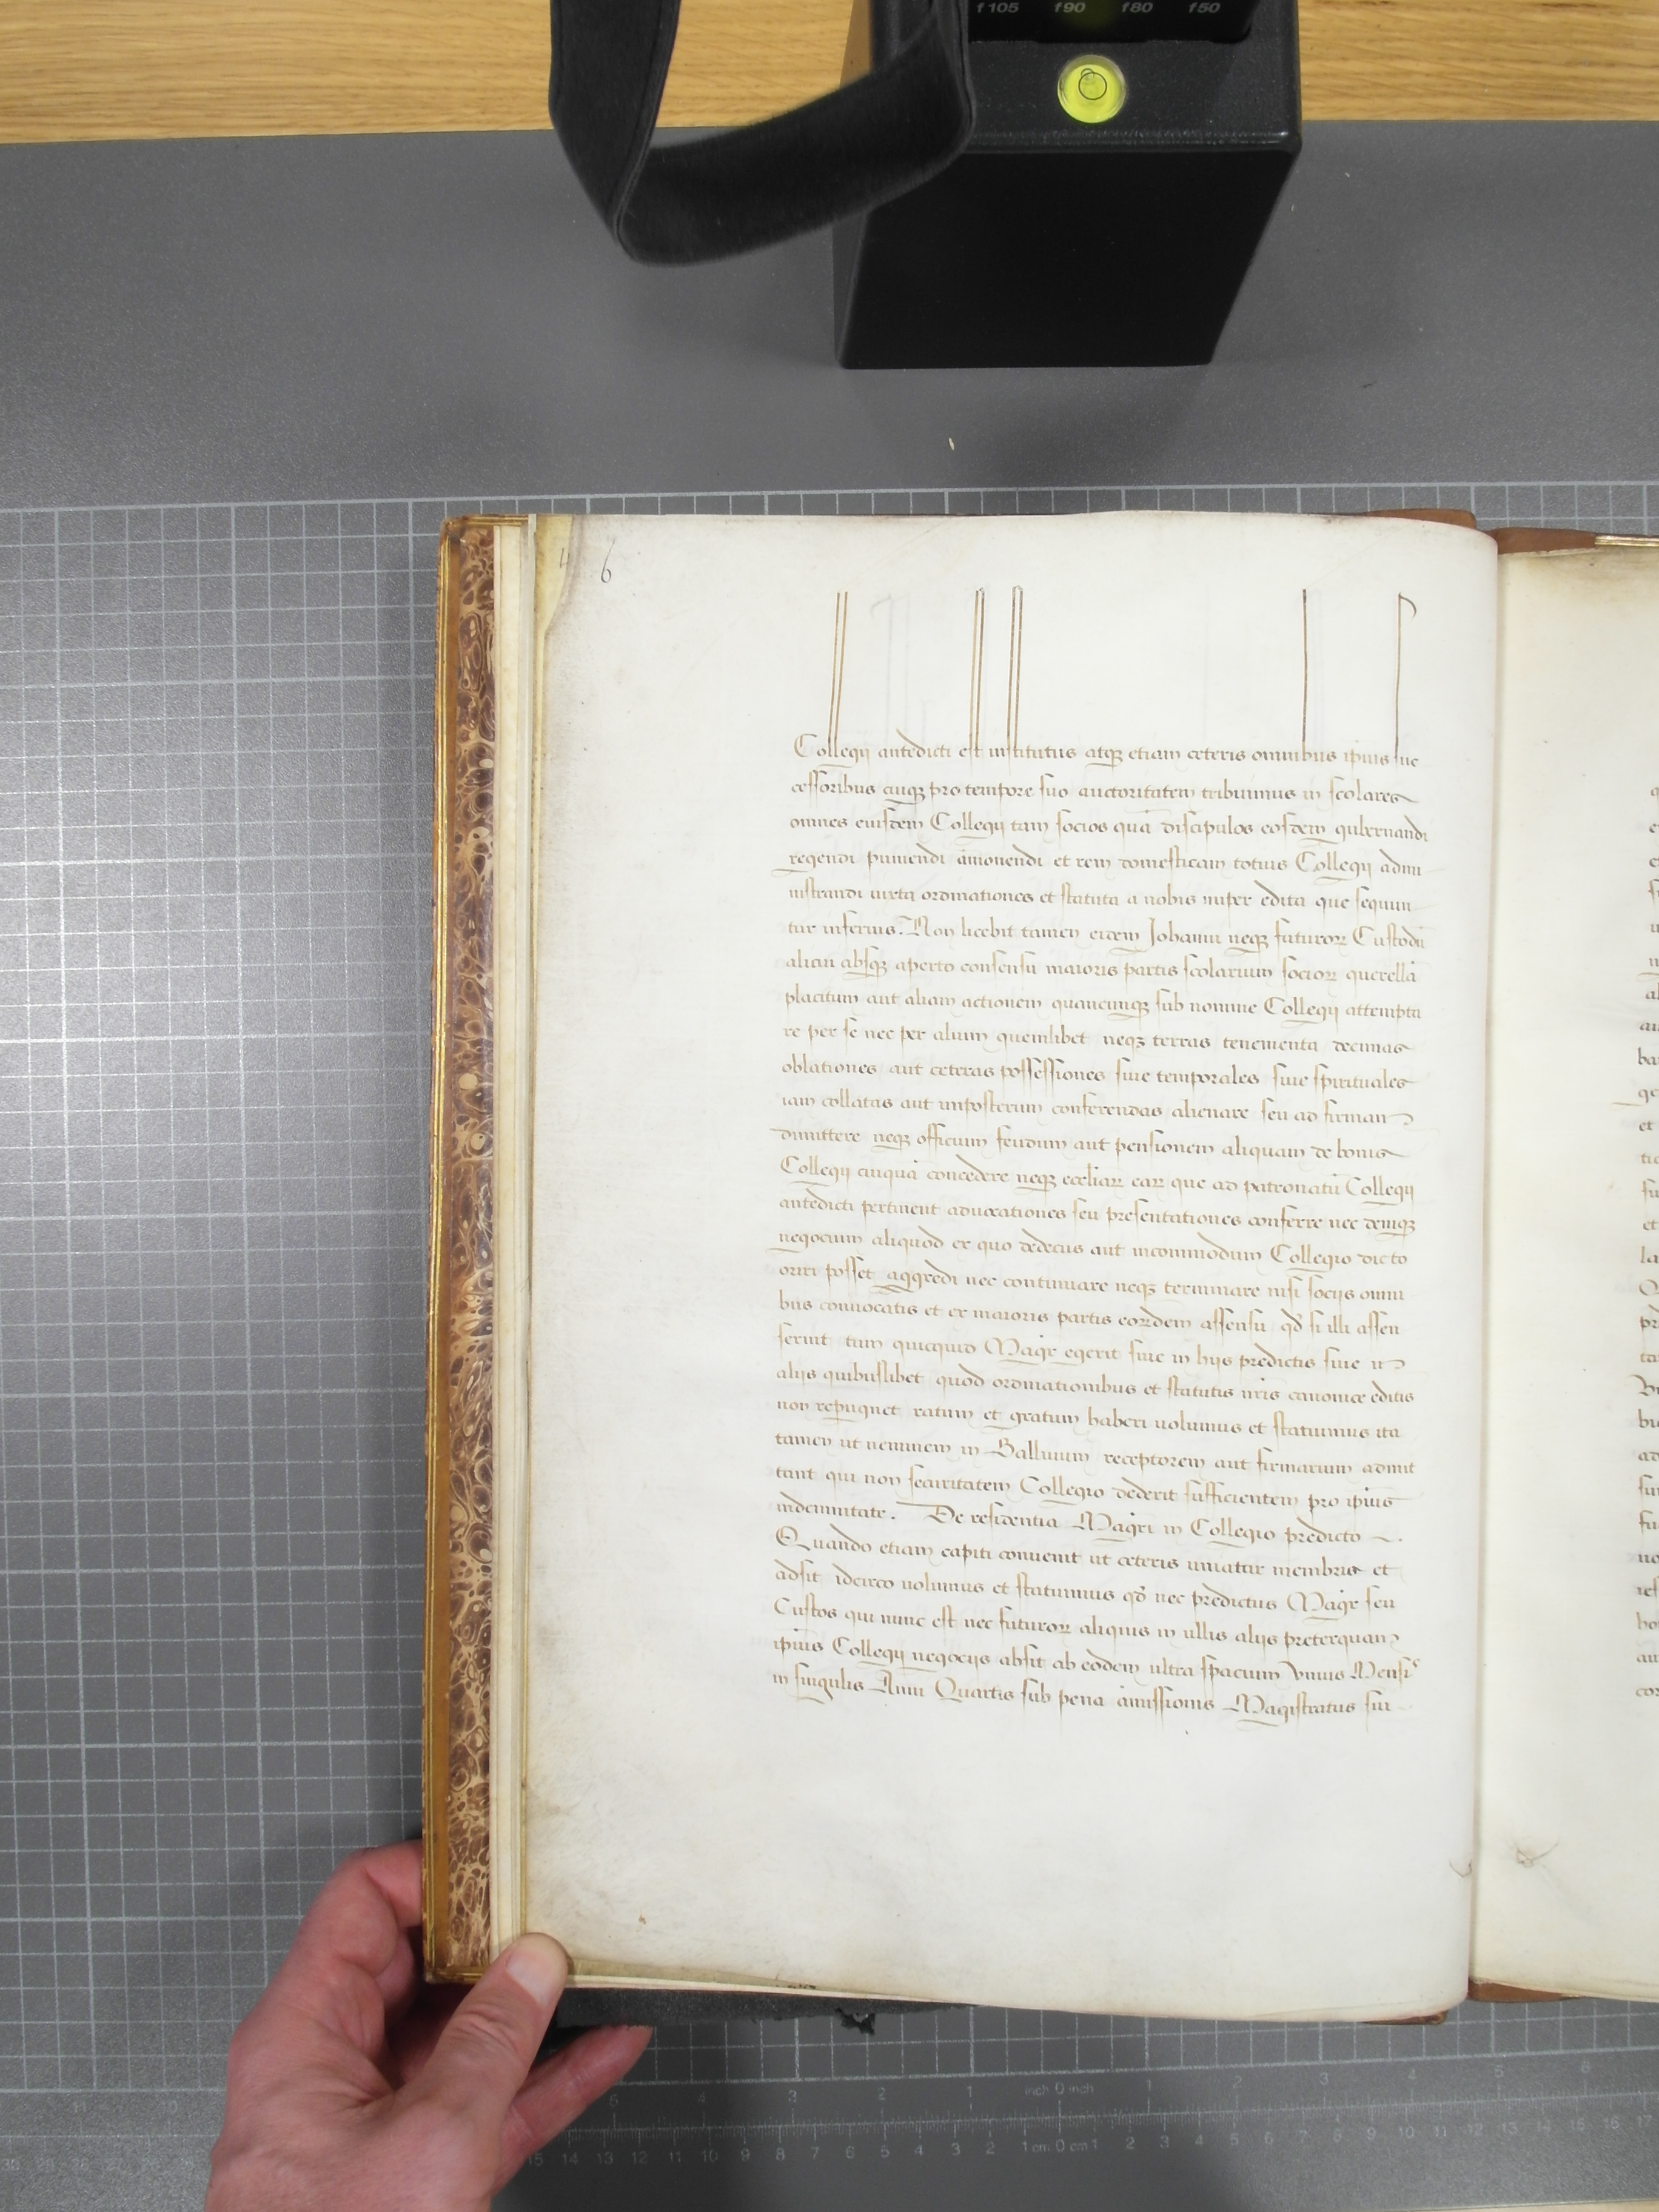 f105 f90 f80 f50
6
Collegij antedicti est institutus atqꝫ etiam ceteris omnibus ip̄ius suc
cessoribus cuiqꝫ pro tempore suo auctoritatem tribuimus in scolares
omnes eiusdem Collegij tam socios quā discipulos eosdem gubernandi
regendi puniendi amouendi et rem domesticam totius Collegij admi
nistrandi iuxta ordinationes et statuta a nobis nuper edita que sequun
tur inferius. Non licebit tamen eidem Johanni neqꝫ futuroꝝ Custodū
alicui absqꝫ aperto consensu maioris partis scolarium socioꝝ querellā
placitum aut aliam actionem quamcumqꝫ sub nomine Collegij attempta
re per se nec per alium quemlibet neqꝫ terras tenementa decimas
oblationes aut ceteras possessiones siue temporales siue spirituales
iam collatas aut imposterum conferendas alienare seu ad firmam
dimittere neqꝫ officium feudum aut pensionem aliquam de bonis
Collegij cuiquā concedere neqꝫ eccliaꝝ eaꝝ que ad patronatū Collegij
antedicti pertinent aduocationes seu presentationes conferre nec deniqꝫ
negocium aliquod ex quo dedecus aut incommodum Collegio dicto
oriri posset aggredi nec continuare neqꝫ terminare nisi socijs omni
bus conuocatis et ex maioris partis eoꝝdem assensu qd̄ si illi assen
serint tum quicquid Magr̄ egerit siue in hijs predictis siue in
alijs quibuslibet quod ordinationibus et statutis nr̄is canonice editis
non repugnet ratum et gratum haberi uolumus et statuimus ita
tamen ut neminem in Balliuum receptorem aut firmarium admit
tant qui non securitatem Collegio dederit sufficientem pro ip̄ius
indemnitate. De residentia Magr̄i in Collegio predicto
Quando etiam capiti conuenit ut ceteris uniatur membris et
adsit idcirco uolumus et statuimus qd̄ nec predictus Magr̄ seu
Custos qui nunc est nec futuroꝝ aliquis in ullis alijs preterquam
ip̄ius Collegij negocijs absit ab eodem ultra spacium Vnius Mensis
in singulis Anni Quartis sub pena amissionis Magistratus sui